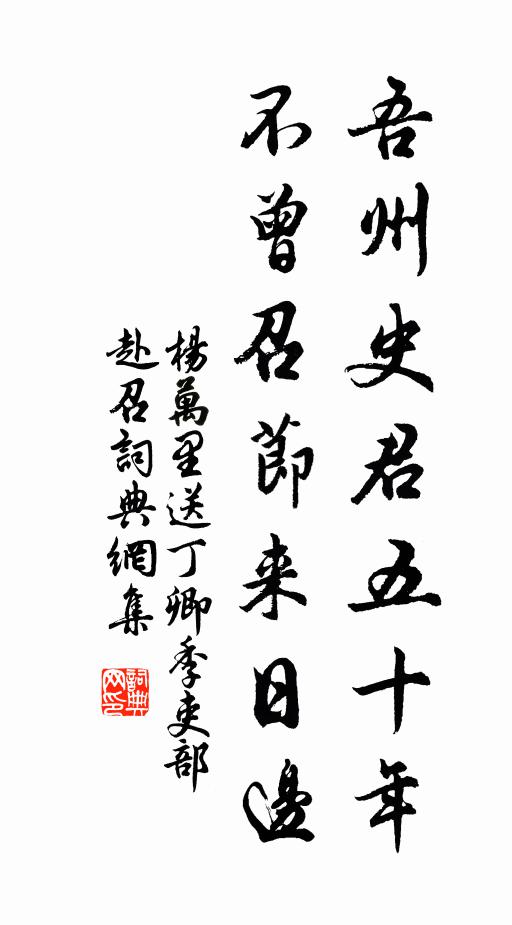 吾州史君五十年
不曾召節来日邊
楊萬里送丁卿季吏部
赴召詞典網集
詞典网印